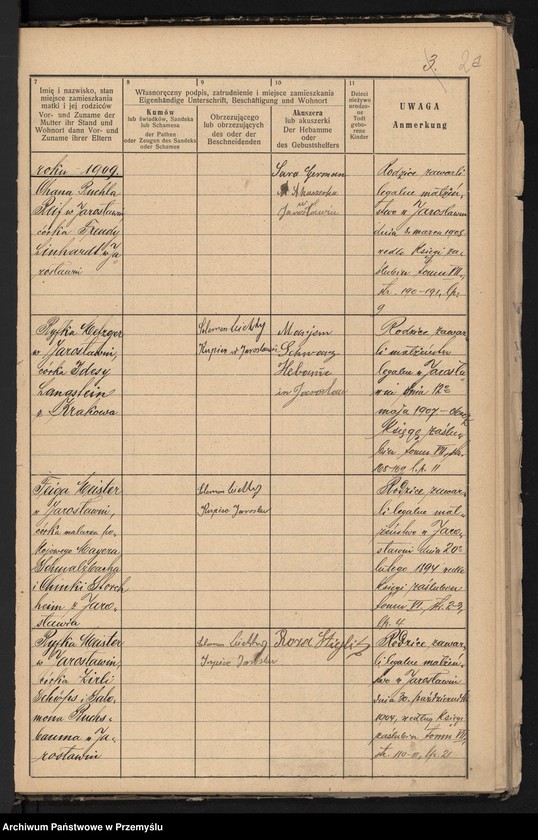 3.
7
Imię i nazwisko, stan
miejsce zamieszkania
matki i jej rodziców
Vor- und Zuname der
Mutter ihr Stand und
Wohnort dann Vor- und
Zuname ihrer Eltern
8
9
10
Własnoręczny podpis, zatrudnienie i miejsce zamieszkania
Eigenhändige Unterschrift, Beschäftigung und Wohnort
Kumów
lub świadków, Sandeka
lub Schamesa
der Pathen
oder Zeugen des Sandeks
oder Schames
Obrzezującego
lub obrzezujących
des oder der
Beschneidenden
Akuszera
lub akuszerki
Der Hebamme
oder
des Geburtshelfers
11
Dzieci
nieżywo
urodzo-
ne
Todt
gebo-
rene
Kinder
UWAGA
Anmerkung
roku 1909.
Chana Ruchla
Reif w Jarosławiu
córka Freudy
Linhardt w Ja
rosławiu
Sara German
Akuszerka
w
Jarosławiu
Rodzice zawarli
legalne małżeń-
stwo w Jarosławiu
dnia marca 1905
wedle Księgi za-
ślubin tomu VII,
str. 190-191, lp.
9
Ryfka Metzger
w Jarosławiu,
córka Idesy
Langstein
z Krakowa
Kupiec w Jarosławiu
Schwarz
Hebamme
in Jaroslau
Rodzice zawar-
li małżeństwo
legalne w Jarosła
wiu dnia 12go
maja 1907 -
Księga zaślu-
bin tomu VII, str.
168-169 l.p. 11
Feiga Meister
w Jarosławiu,
córka malarza po-
kojowego Mayera
Schmalzbacha
i Chinki Storch
heim z Jaro-
sławia
Kupiec Jaroslau
Rodzice zawar-
li legalne mał-
żeństwo w Jaro-
sławiu dnia 20go
lutego 1894 wedle
Księgi zaślubin
tomu VI, str. 2-3,
lp. 4
Ryfka Meister
w Jarosławiu,
córka Zirli
Schöps i Salo-
mona Ruchs-
bauma w Ja-
rosławiu
Kupiec Jaroslau
Roza Stieglitz
Rodzice zawar-
li legalne małżeń-
stwo w Jarosławiu
dnia 30. października
1904, według Księgi
zaślubin tomu VII,
str. 110-111, lp. 21
Archiwum Państwowe w Przemyślu